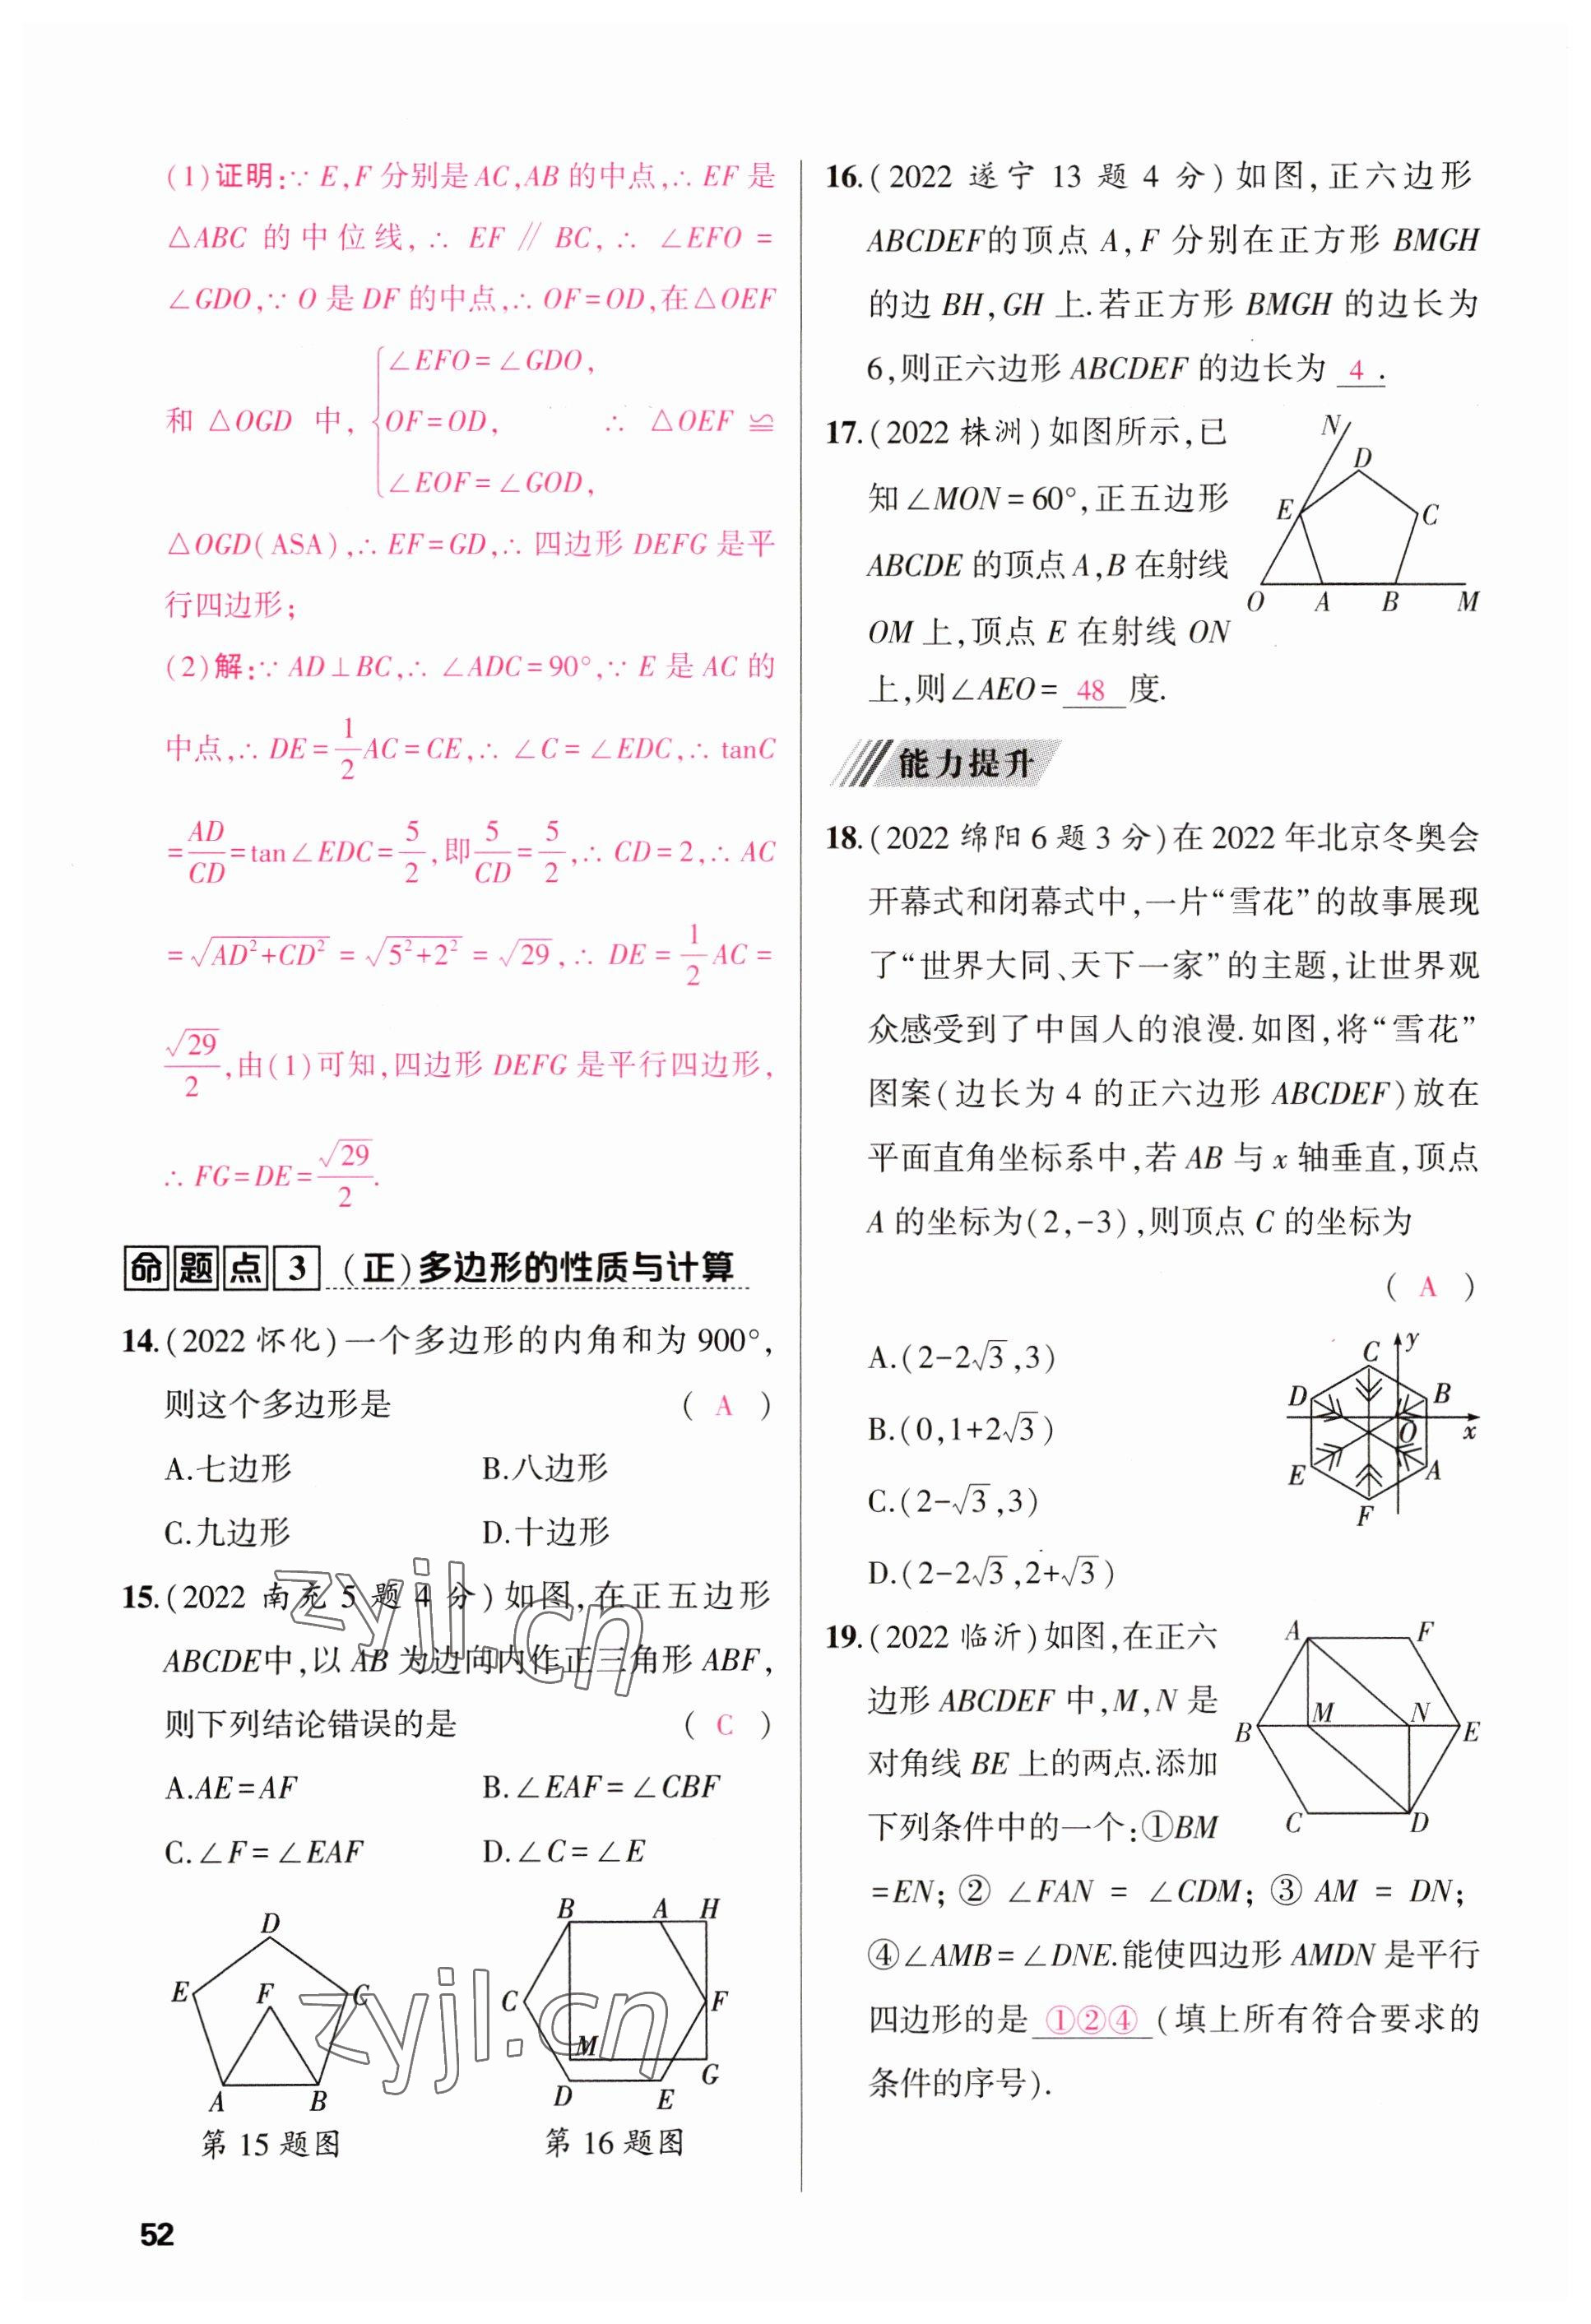 (1)证明:∵ E,F 分别是 AC,AB 的中点,∴ EF 是
△ABC 的中位线,∴ EF∥BC,∴ ∠EFO =
∠GDO,∵ O 是 DF 的中点,∴ OF=OD,在△OEF
和 △OGD 中, {∠EFO=∠GDO,
OF=OD, ∴ △OEF ≌
∠EOF=∠GOD,
△OGD(ASA),∴ EF=GD,∴ 四边形 DEFG 是平
行四边形;
(2)解:∵ AD⊥BC,∴ ∠ADC=90°,∵ E 是 AC 的
中点,∴ DE=1/2 AC=CE,∴ ∠C=∠EDC,∴ tanC
=AD/CD=tan∠EDC=5/2,即5/CD=5/2,∴ CD=2,∴ AC
=√(AD²+CD²) = √(5²+2²) = √29,∴ DE=1/2 AC=
√29/2,由(1)可知,四边形 DEFG 是平行四边形,
∴ FG=DE=√29/2.
命题点3 (正)多边形的性质与计算
14.(2022 怀化)一个多边形的内角和为 900°,
则这个多边形是 ( A )
A.七边形 B.八边形
C.九边形 D.十边形
15.(2022 南充 5 题 4 分)如图,在正五边形
ABCDE中,以 AB 为边向内作正三角形 ABF,
则下列结论错误的是 ( C )
A.AE=AF B.∠EAF=∠CBF
C.∠F=∠EAF D.∠C=∠E
D
E F C
A B
第 15 题图
B A H
C F
M
D E G
第 16 题图
zyjl.cn
zyjl.cn
52
16.(2022 遂宁 13 题 4 分)如图,正六边形
ABCDEF的顶点 A,F 分别在正方形 BMGH
的边 BH,GH 上.若正方形 BMGH 的边长为
6,则正六边形 ABCDEF 的边长为 4 .
17.(2022 株洲)如图所示,已
知∠MON=60°,正五边形
ABCDE 的顶点 A,B 在射线
OM 上,顶点 E 在射线 ON
上,则∠AEO= 48 度.
N
D
E C
O A B M
能力提升
18.(2022 绵阳 6 题 3 分)在 2022 年北京冬奥会
开幕式和闭幕式中,一片“雪花”的故事展现
了“世界大同、天下一家”的主题,让世界观
众感受到了中国人的浪漫.如图,将“雪花”
图案(边长为 4 的正六边形 ABCDEF)放在
平面直角坐标系中,若 AB 与 x 轴垂直,顶点
A 的坐标为(2,-3),则顶点 C 的坐标为
( A )
A.(2-2√3,3)
B.(0,1+2√3)
C.(2-√3,3)
D.(2-2√3,2+√3)
C y
D B
O x
E A
F
19.(2022 临沂)如图,在正六
边形 ABCDEF 中,M,N 是
对角线 BE 上的两点.添加
下列条件中的一个:①BM
=EN;② ∠FAN = ∠CDM;③ AM = DN;
④∠AMB=∠DNE.能使四边形 AMDN 是平行
四边形的是 ①②④ (填上所有符合要求的
条件的序号).
A F
B M N E
C D